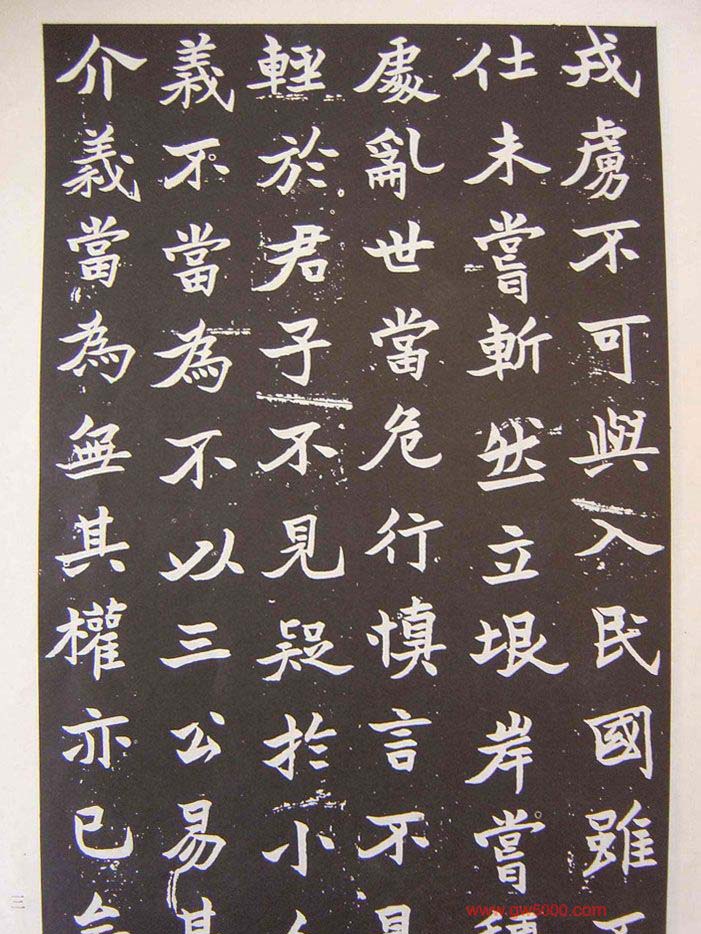 戎虜不可與入民國雖不
仕未嘗斬然立垠岸嘗種
處亂世當危行慎言不見
輕於君子不見疑於小人
義不當為不以三公易其
介義當為無其權亦已矣
三
www.gw5000.com